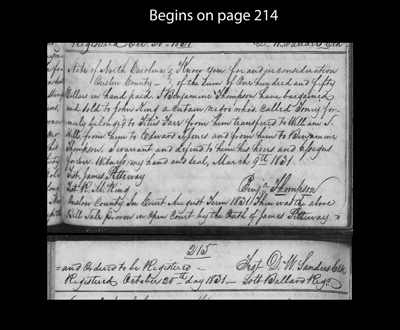 Begins on page 214
Registered Dec. 20. 1831
State of North Carolina } Know you for and in consideration
Onslow County } of the sum of One hundred and fifty
Dollars in hand paid. I Benjamine Thompson have bargained
and sold to John King a certain negro who is called Toney for-
merly belonging to Titus Farr from him transfered to William S.
Hill from him to Edward Jones and from him to Benjamin
Thompson, I warrant and defend to him his heirs and assigns
forever. Witness my hand and seal, March 9th 1831.
Test. James Petteway
Test R. M. King Benja Thompson
Onslow County In Court August Term 1831 Then was the above
Bill Sale proven in Open Court by the Oath of James Petteway
215
and Ordered to be Registered Test D. W. Sanders Clk
Registered October 20th day 1831 Lott Ballard Regr